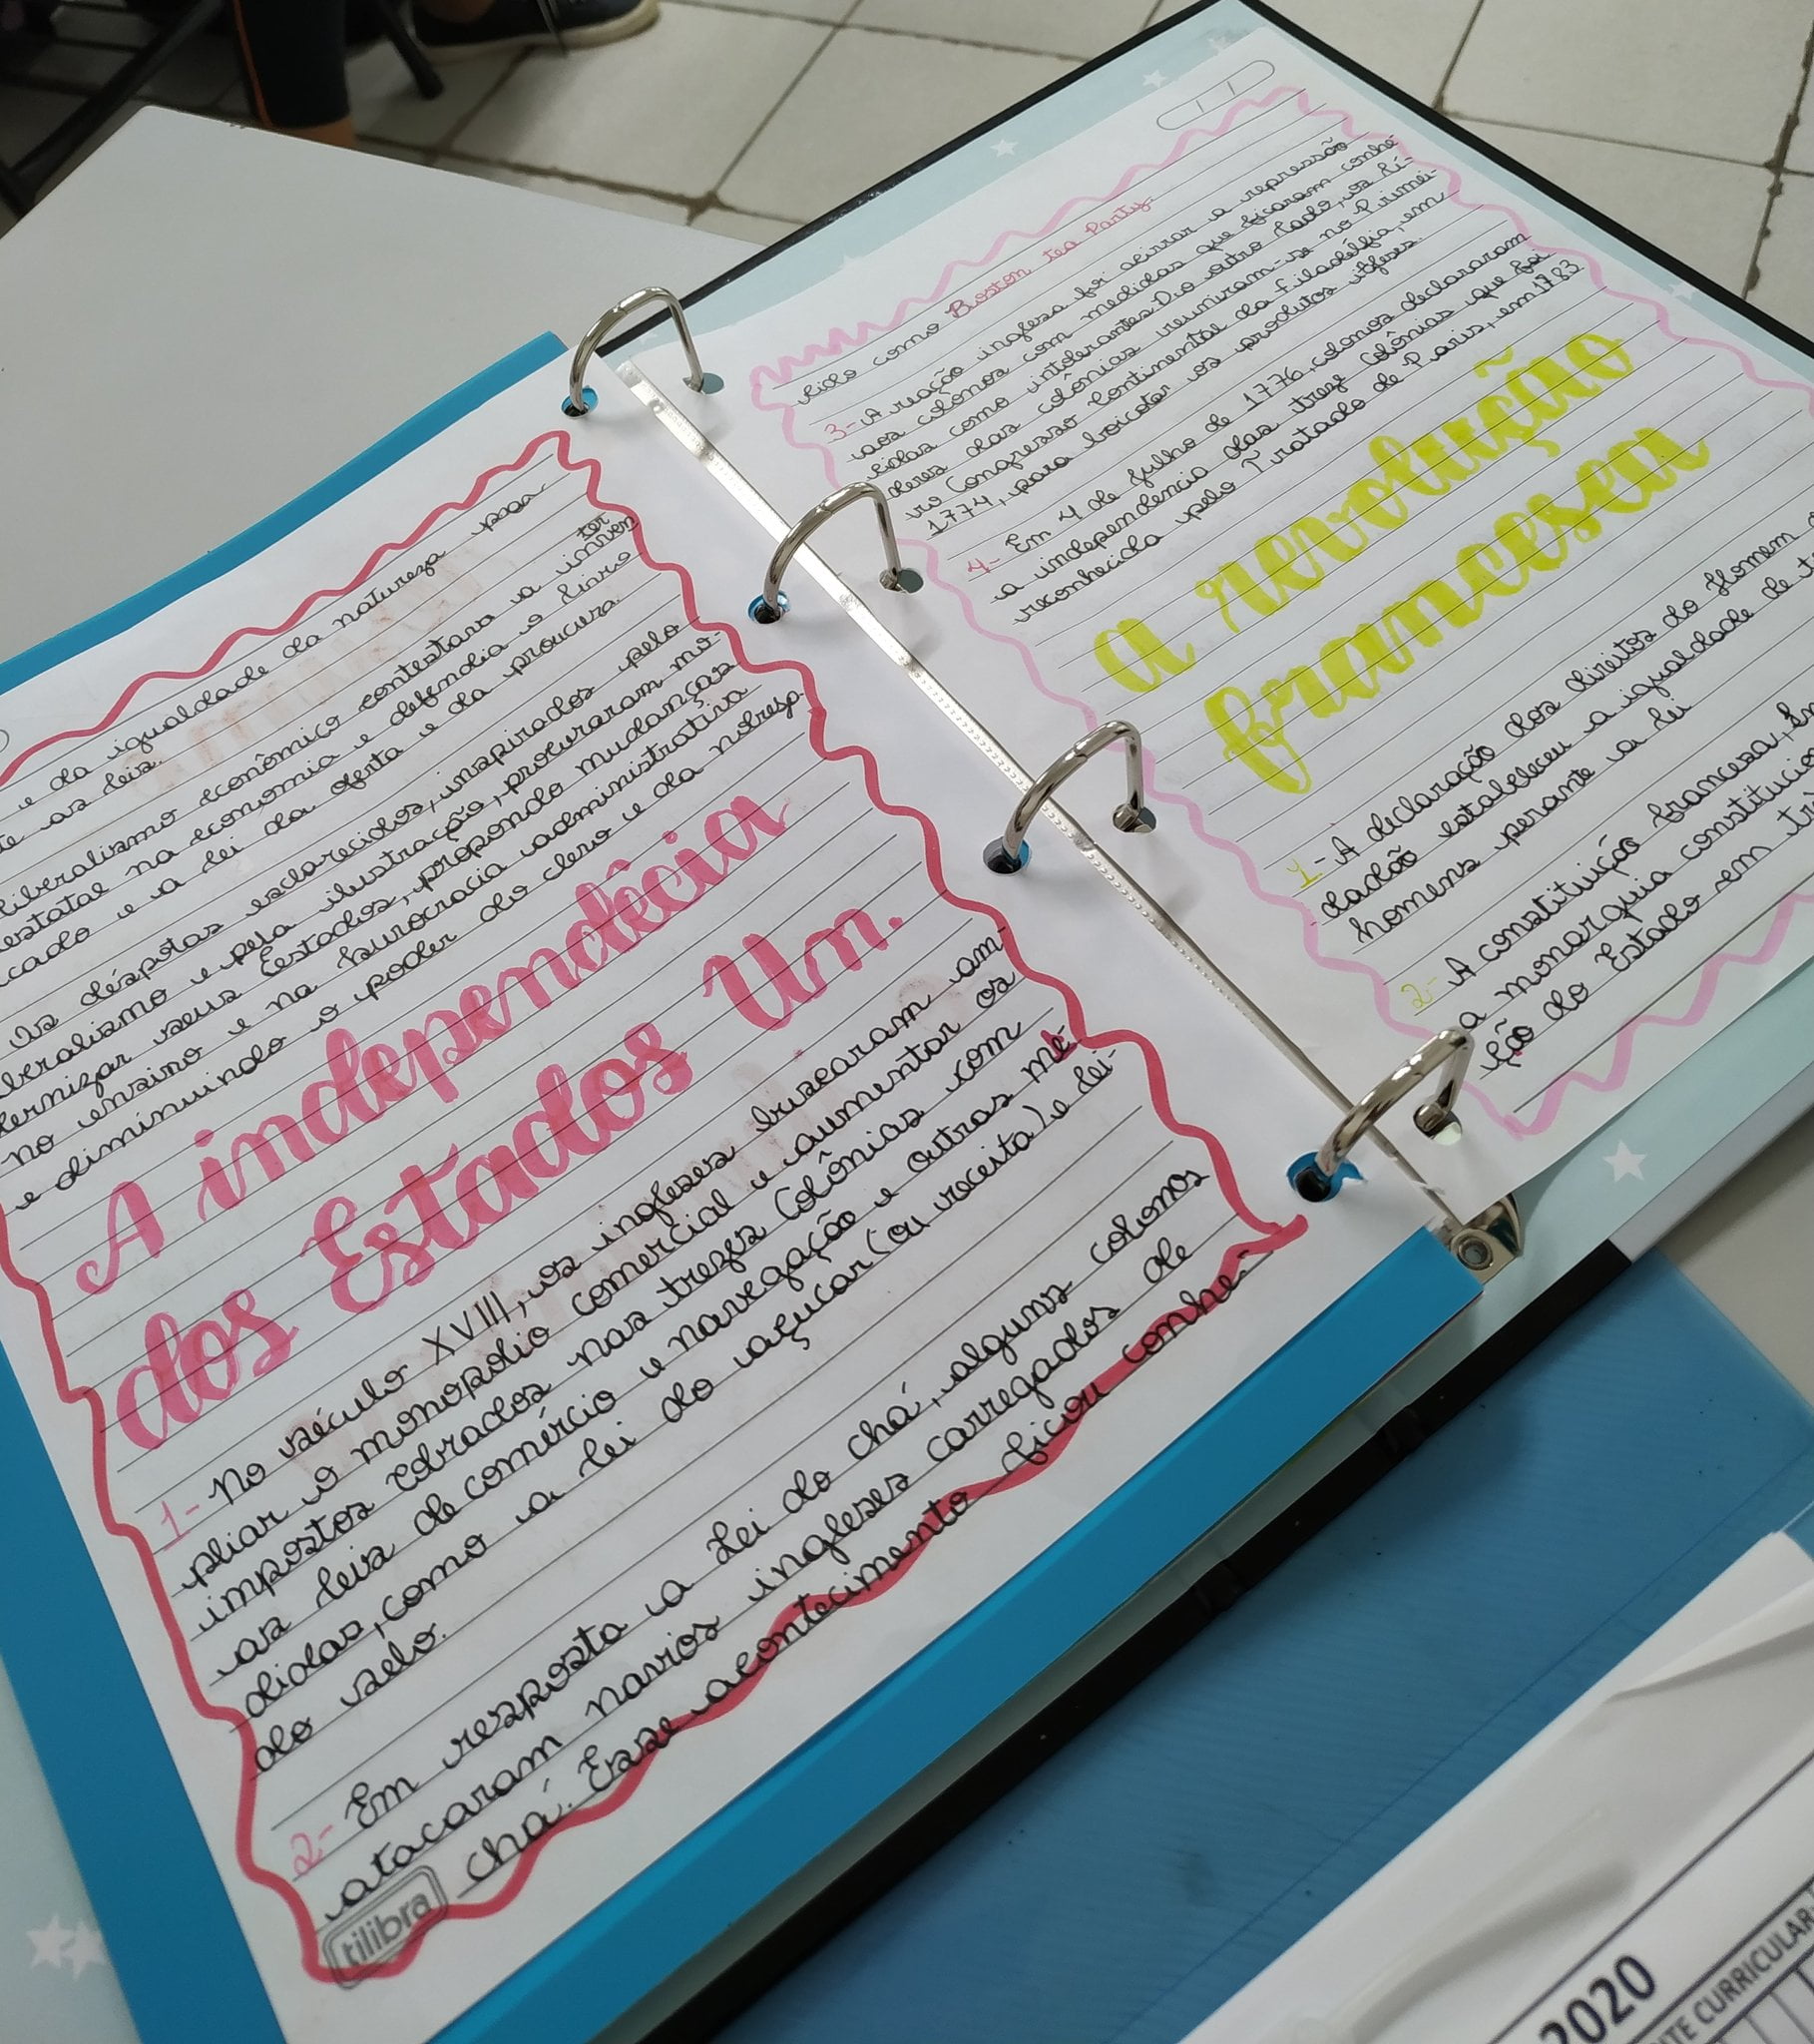 e da igualdade da natureza
as leis.
liberalismo econômico contestava a inter
ven
estatal na economia e defendia o livre
cado e a lei da oferta e da proucura.
Os déspotas esclarecidos, inspirados pelo
beralismo e pela ilustração, procuraram mo-
dernizar seus Estados, propondo mudanças
no ensino e na burocracia administrativa
e diminuindo o poder do clero e da nobresa.
A independêcia
dos Estados Un.
1- No século XVIII, os ingleses buscaram am-
pliar o monopólio comercial e aumentar os
impostos cobrados nas trezes Colônias com
as leis de comércio e navegação e outras me-
didas, como a lei do açucar (ou receita) e lei-
do selo.
2- Em resposta a Lei do chá, alguns colonos
atacaram navios ingleses carregados de
chá. Esse acontecimento ficou conhe-
tilibra
cido como Boston tea Party
3- A reação inglesa foi acirrar a repressão
aos colonos com medidas que ficaram conhe-
cidas como intolerantes. Do outro lado, os lí-
deres das colônias reuniram-se no Primei-
ro Congresso Continental da Filadélfia, em
1774, para boicotar os produtos
4- Em 4 de julho de 1776, colonos declararam
a independencia das treze Colônias que foi
reconhecida pelo Tratado de Paris, em 1783
a revolução
francesa
1- A declaração dos direitos do Homem
dadão estabeleceu a igualdade de
homens perante a lei
2- A constituição francesa,
a monarquia
ção do Estado em
2020
CURRICULAR